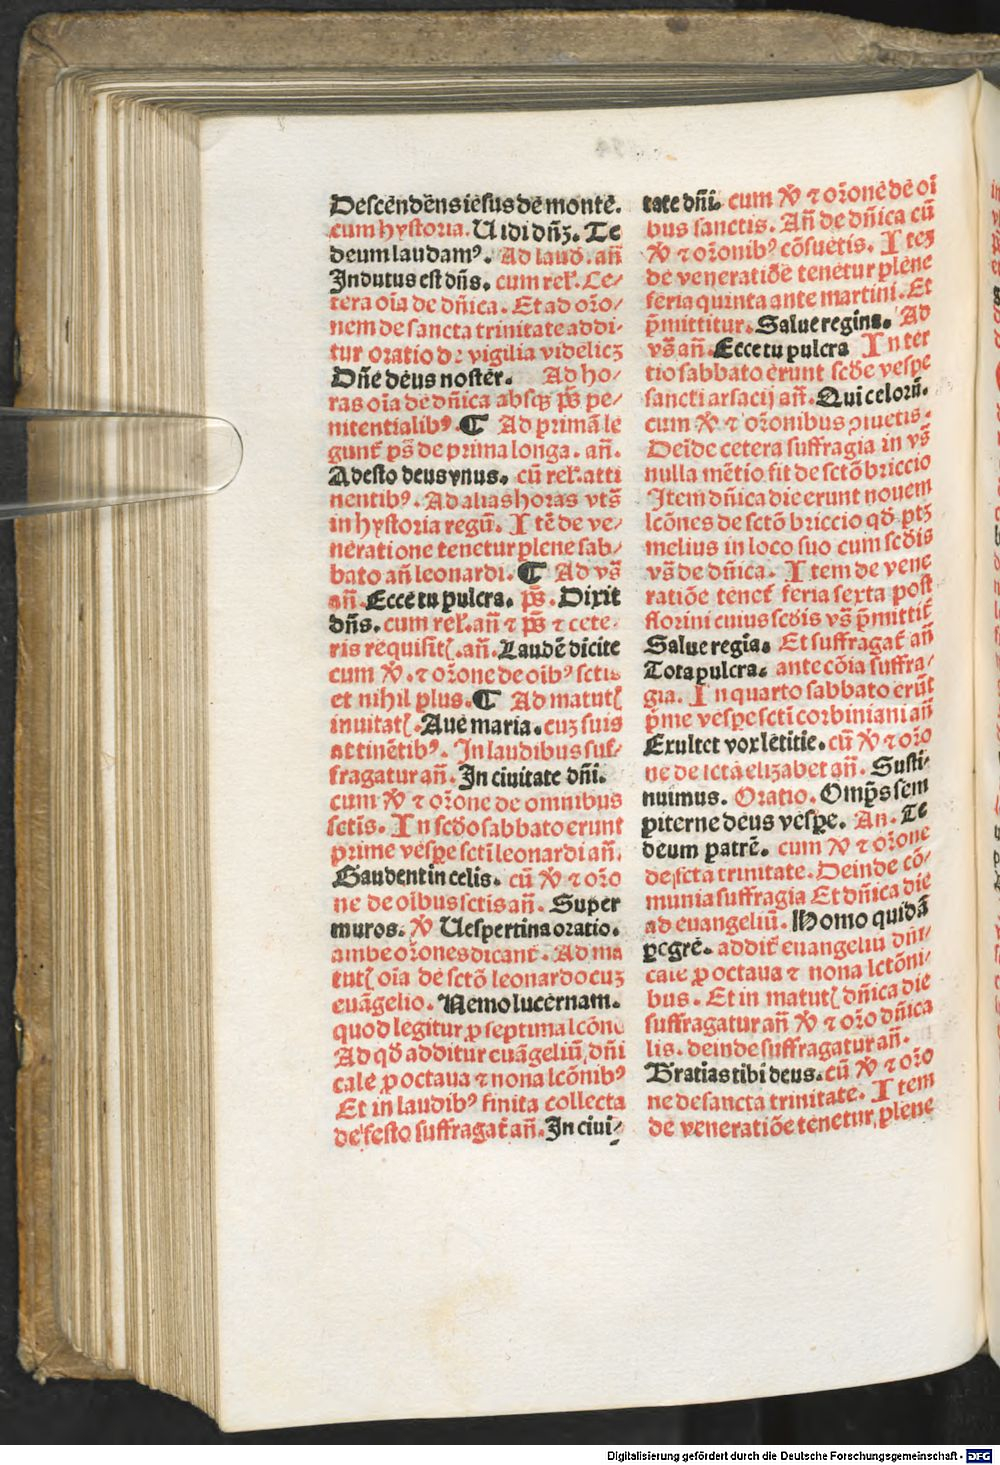 Descēndēns iēsus dē montē.
cum hystoria. Uidi dn̄ꝫ. Te
deum laudamꝰ. Ad laud. an̄
Indutus est dn̄s. cum rel̓. Ce⸗
tera oīa de dn̄ica. Et ad or̄o⸗
nem de sancta trinitate addi⸗
tur oratio de vigilia videlicꝫ
Dn̄e dēus nostēr. Ad ho⸗
ras oīa dē dn̄ica absqꝫ ps̄ pe⸗
nitentialibꝰ. ¶ Ad primā le
gunt̄ ps̄ de prima longa. an̄.
Adesto deus vnus. cū rel̓. atti
nentibꝰ. Ad alias horas vts̄
in hystoria regū. Itē de ve⸗
neratione tenetur plene sab⸗
bato an̄ leonardi. ¶ Ad vs̄
an̄. Ecce tu pulcra. ps̄. Dixit
dn̄s. cum rel̓. an̄ ⁊ ps̄ ⁊ cete⸗
ris requisit̄ꝭ. an̄. Laudē dicite
cum ℣. ⁊ or̄one de oībꝰ sctis
et nihil plus. ¶ Ad matutꝭ
inuitatꝭ. Aue maria. cuꝫ suis
attinētibꝰ. In laudibus suf⸗
fragatur an̄. In ciuitate dn̄i.
cum ℣ ⁊ or̄one de omnibus
sctīs. In scd̄o sabbato erunt
prime vesꝑe sctī leonardi an̄.
Gaudent in celis. cū ℣ ⁊ or̄o
ne de oībus sctis an̄. Super
muros. ℣ Uespertina oratio.
ambe or̄ones dicant̄. Ad ma
tutꝭ oīa de sctō leonardo cuꝫ
euāgelio. Nemo lucernam.
quod legitur ꝓ septima lcōne
Ad qd̄ additur euāgeliū dn̄i
cale ꝓ octaua ⁊ nona lcōnibꝰ
Et in laudibꝰ finita collecta
de festo suffragat̄ an̄. In ciui⸗
tate dn̄i. cum ℣ ⁊ or̄onē dē oī
bus sanctis. An̄ de dn̄ica cū
℣ ⁊ or̄onibꝰ cōsuetis. Iteꝫ
de veneratiōe tenetur plene
feria quinta ante martini. Et
p̄mittitur. Salue regina. Ad
vs̄ an̄. Ecce tu pulcra In ter
tio sabbato erunt scd̄e vesꝑe
sancti arsacij an̄. Qui celorū.
cum ℣ ⁊ or̄onibus ꝯsuetis.
Deīde cetera suffragia in vs̄
nulla mētio fit de sctō briccio
Item dn̄ica die erunt nouem
lcōnes de sctō briccio qd̄ ptꝫ
melius in loco suo cum scd̄is
vs̄ de dn̄ica. Item de vene
ratiōe tenet̄ feria sexta post
florini cuius scd̄is vs̄ p̄mittit̄
Salue regīa. Et suffragat̄ an̄
Tota pulcra. ante cōia suffra⸗
gia. In quarto sabbato erūt
p̄me vesꝑe sctī corbiniani an̄
Exultet vox letitie. cū ℣ ⁊ or̄o
ne de sctā elizabet an̄. Susti⸗
nuimus. Oratio. Omps̄ sem
piterne deus vesꝑe. An. Te
deum patrē. cum ℣ ⁊ or̄one
de scta trinitate. Deinde cō⸗
munia suffragia Et dn̄ica die
ad euangeliū. Homo quidā
ꝑegrē. addit̄ euangeliū dn̄i⸗
cale ꝓ octaua ⁊ nona lctōni⸗
bus. Et in matutꝭ dn̄ica die
suffragatur an̄ ℣ ⁊ or̄o dn̄ica
lis. deinde suffragatur an̄.
Gratias tibi deus. cū ℣ ⁊ or̄o
ne de sancta trinitate. Item
de veneratiōe tenetur, plene
Digitalisierung gefördert durch die Deutsche Forschungsgemeinschaft - DFG